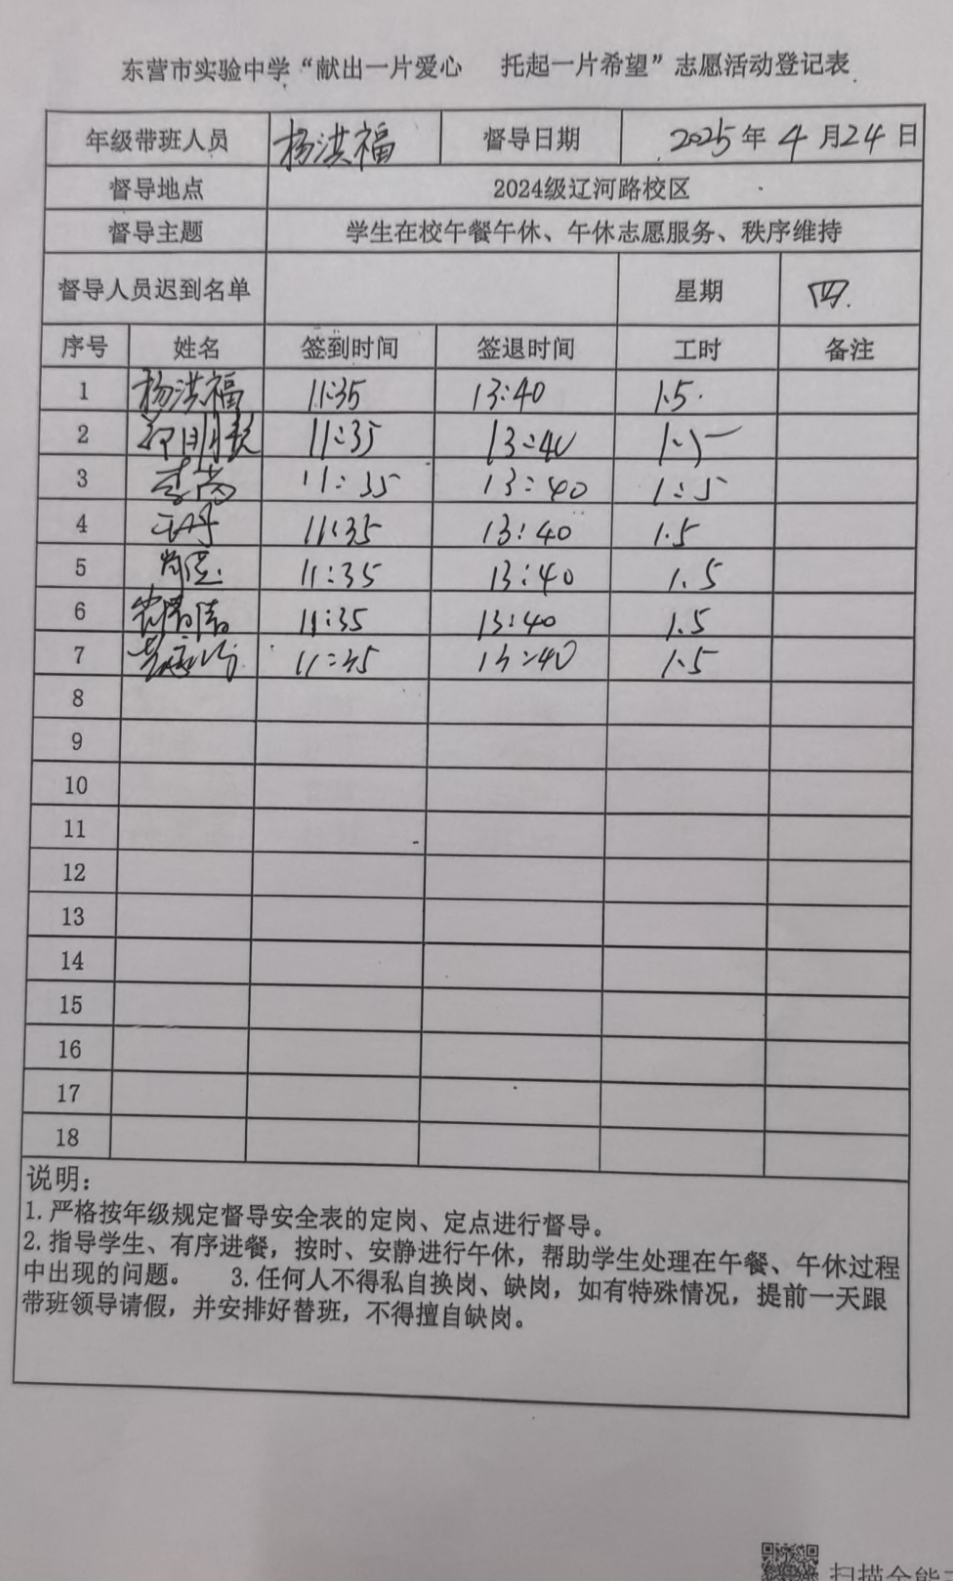 东营市实验中学“献出一片爱心 托起一片希望”志愿活动登记表
年级带班人员 杨洪福 督导日期 2025年4月24日
督导地点 2024级辽河路校区
督导主题 学生在校午餐午休、午休志愿服务、秩序维持
督导人员迟到名单 星期 四.
序号 姓名 签到时间 签退时间 工时 备注
1 杨洪福 11:35 13:40 1.5.
2 11:35 13:40 1.5
3 李尚 11:35 13:40 1:5
4 11:35 13:40 1.5
5 11:35 13:40 1.5
6 11:35 13:40 1.5
7 11:35 13:40 1.5
8
9
10
11
12
13
14
15
16
17
18
说明:
1.严格按年级规定督导安全表的定岗、定点进行督导。
2.指导学生、有序进餐，按时、安静进行午休，帮助学生处理在午餐、午休过程
中出现的问题。 3.任何人不得私自换岗、缺岗，如有特殊情况，提前一天跟
带班领导请假，并安排好替班，不得擅自缺岗。
扫描全能